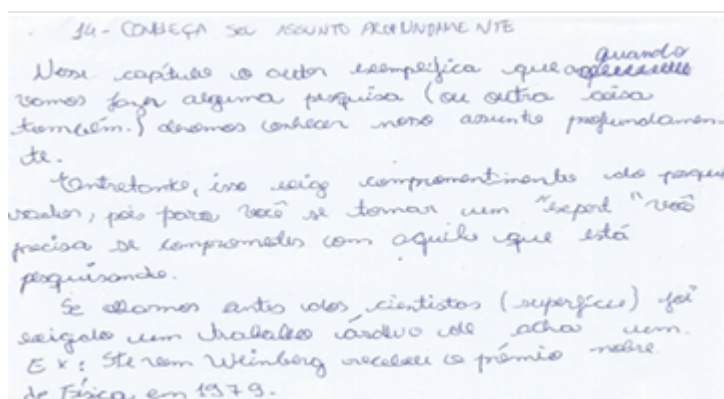 14 - CONHEÇA SEU ASSUNTO PROFUNDAMENTE
Nesse capítulo o autor exemplifica que quando
vamos fazer alguma pesquisa (ou outra coisa
também.) devemos conhecer nosso assunto profundamen-
te.
Entretanto, isso exige comprometimento do pesqui
sador, pois para você se tornar um "expert" você
precisa se comprometer com aquilo que está
pesquisando.
Se olharmos antes dos cientistas (superfície) foi
exigido um trabalho árduo de acha um.
Ex: Steven Weinberg recebeu o prêmio nobre
de Física em 1979.